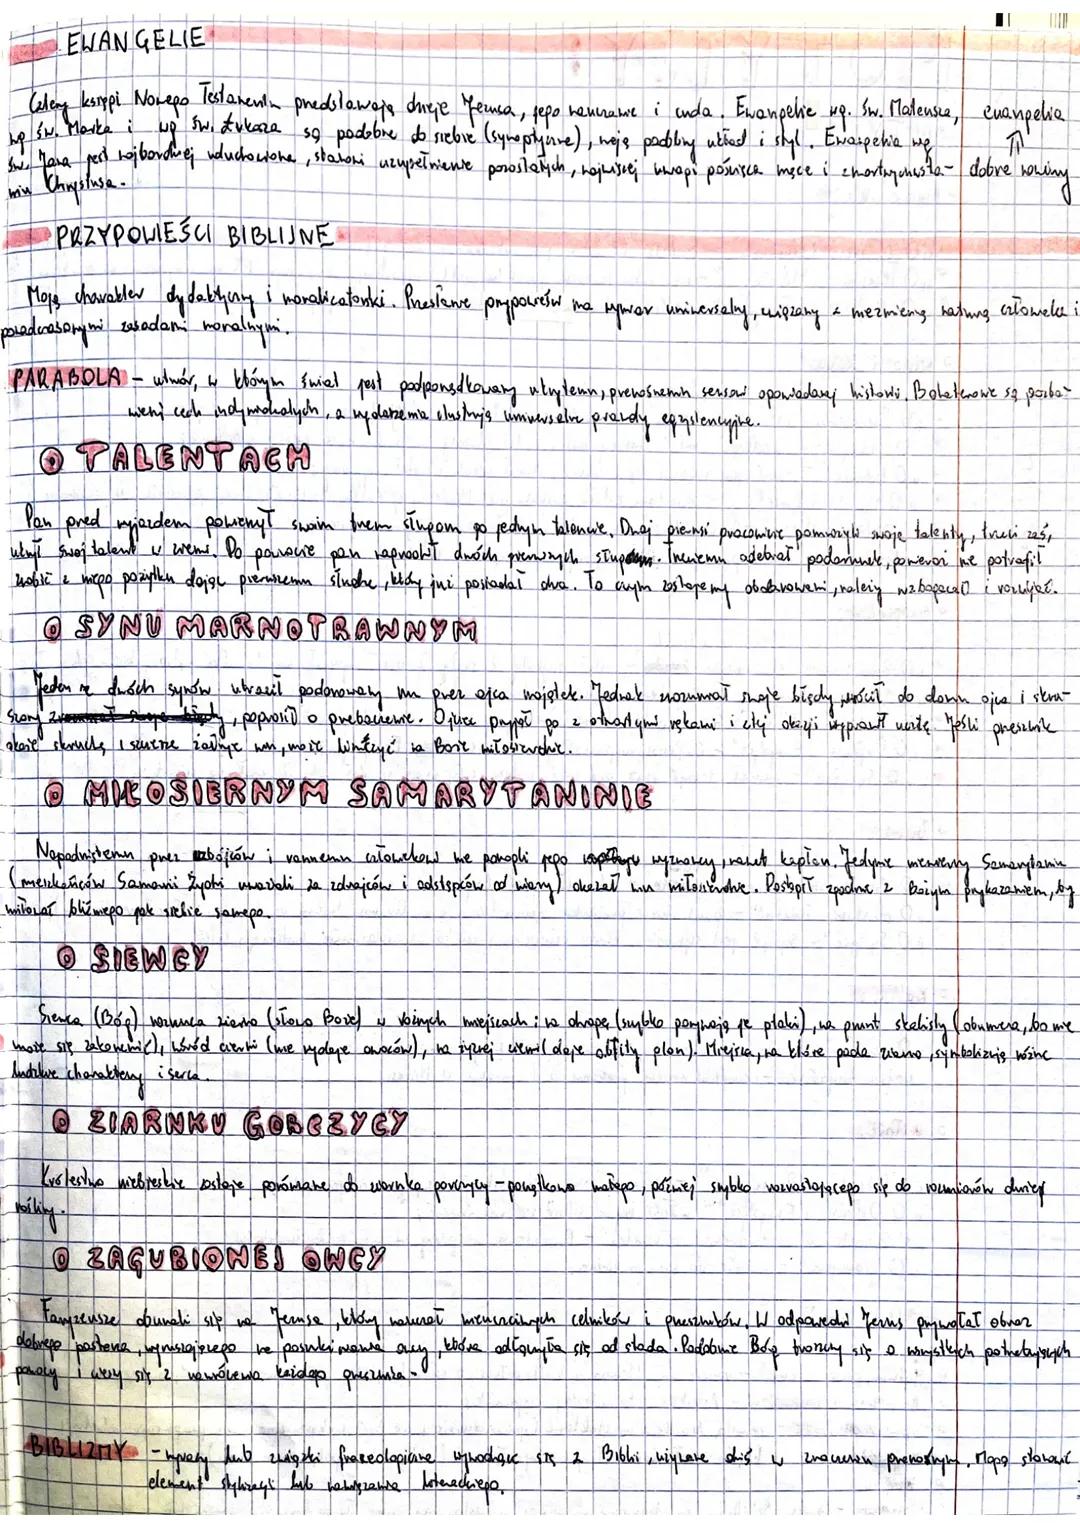 EWANGELIE
Cztery księgi Nowego Testamentu przedstawiają dzieje Jezusa, jego nauczanie i cuda. Ewangelie wg. św. Mateusza, ewangelia
wg św. Marka i wg św. Łukasza są podobne do siebie (synoptyczne), mają podobny układ i styl. Ewangelia wg ⇑
św. Jana jest najbardziej uduchowiona, stanowi uzupełnienie pozostałych, najwięcej uwagi poświęca męce i zmartwychwsta- dobre nowiny
niu Chrystusa.
PRZYPOWIEŚCI BIBLIJNE
Mają charakter dydaktyczny i moralizatorski. Przesłanie przypowieści ma wymiar uniwersalny, związany z niezmienną naturą człowieka i
ponadczasowymi zasadami moralnymi.
PARABOLA - utwór, w którym świat jest podporządkowany ukrytemu, przenośnemu sensowi opowiadanej historii. Bohaterowie są pozba-
wieni cech indywidualnych, a wydarzenia ilustrują uniwersalne prawdy egzystencyjne.
O TALENTACH
Pan przed wyjazdem powierzył swoim trzem sługom po jednym talencie. Dwaj pierwsi pracowicie pomnożyli swoje talenty, trzeci zaś,
ukrył swój talent w ziemi. Po powrocie pan nagrodził dwóch pierwszych sług. Trzeciemu odebrał podarunek, ponieważ nie potrafił
zrobić z niego pożytku dając pierwszemu słudze, który już posiadał dwa. To czym zostajemy obdarowani, należy wzbogacać i rozwijać.
O SYNU MARNOTRAWNYM
Jeden ze dwóch synów utracił podarowany mu przez ojca majątek. Jednak zrozumiał swoje błędy, wrócił do domu ojca i skru-
szony, poprosił o przebaczenie. Ojciec przyjął go z otwartymi rękami i z tej okazji wyprawił ucztę. Jeśli grzesznik
okaże skruchę i szczerze żałuje win, może liczyć na Boże miłosierdzie.
O MIŁOSIERNYM SAMARYTANINIE
Napadniętemu przez zbójców i rannemu człowiekowi nie pomogli jego wyznawcy, nawet kapłan. Jedynie niewierny Samarytanin
(mieszkańców Samarii Żydzi uważali za zdrajców i odstępców od wiary) okazał mu miłosierdzie. Postąpił zgodnie z Bożym przykazaniem, by
miłować bliźniego jak siebie samego.
O SIEWCY
Siewca (Bóg) rozrzuca ziarno (słowo Boże) w różnych miejscach: na drogę (szybko porywają je ptaki), na grunt skalisty (obumiera, bo nie
może się zakorzenić), wśród cierni (nie wydaje owoców), na żyznej ziemi (daje obfity plon). Miejsca, na które pada ziarno, symbolizują różne
ludzkie charaktery i serca.
O ZIARNKU GORCZYCY
Królestwo niebieskie zostaje porównane do ziarnka gorczycy - początkowo małego, później szybko rozrastającego się do rozmiarów dużej
rośliny.
O ZAGUBIONEJ OWCY
Faryzeusze oburzali się na Jezusa, który nauczał nieuczciwych celników i grzeszników. W odpowiedzi Jezus przywołał obraz
dobrego pasterza, wyruszającego na poszukiwania owcy, która odłączyła się od stada. Podobnie Bóg troszczy się o wszystkich potrzebujących
pomocy i cieszy się z nawrócenia każdego grzesznika.
BIBLIZMY - wyrazy lub związki frazeologiczne wywodzące się z Biblii, używane dziś w znaczeniu przenośnym. Mogą stanowić
element stylizacji lub nawiązania literackiego.